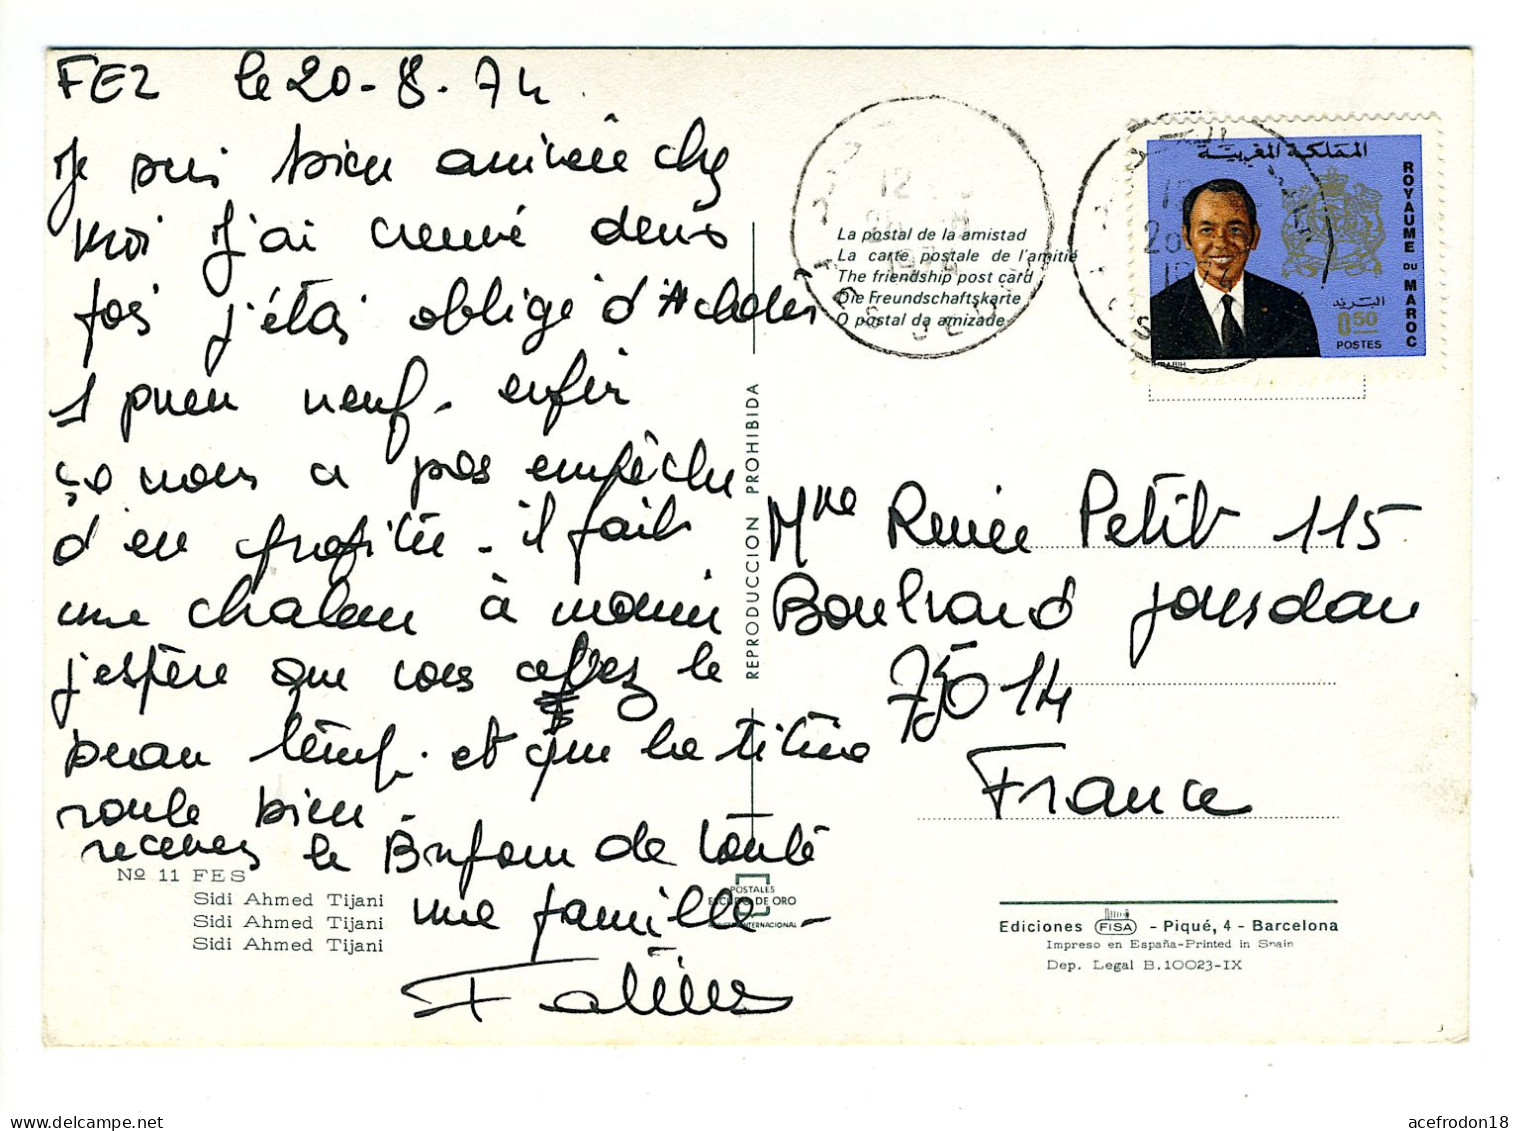 FEZ le 20-8.74
Je suis bien arrivée chez
moi J'ai crevé deux
fois j'étais oblige d'Acheter
1 pneu neuf. enfin
ça nous a pas empêche
d'en profiter. il fait
une chaleur à mourir
j'espère que vous avez le
beau temps. et que la
roule bien.
recevez le Bonjour de toute
une famille -
La postal de la amistad
La carte postale de l'amitié
The friendship post card
Die Freundschaftskarte
O postal da amizade
المملكة المغربية
ROYAUME DU MAROC
البريد
0.50
POSTES
1974
REPRODUCCION PROHIBIDA
Mme Renée Petit 115
Boulevard Jourdan
75014
France
Nº 11 FES
Sidi Ahmed Tijani
Sidi Ahmed Tijani
Sidi Ahmed Tijani
POSTALES
ESCUDO DE ORO
Ediciones FISA - Piqué, 4 - Barcelona
Impreso en España-Printed in Spain
Dep. Legal B.10023-IX
acefrodon18